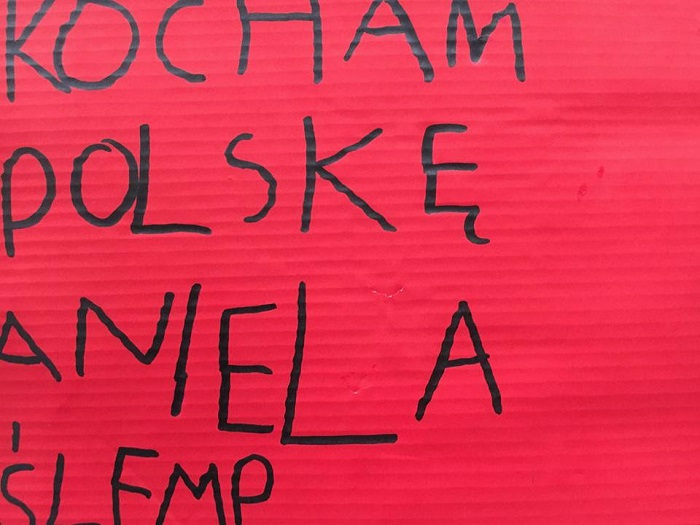 KOCHAM
POLSKĘ
ANIELA
ŚLEMP